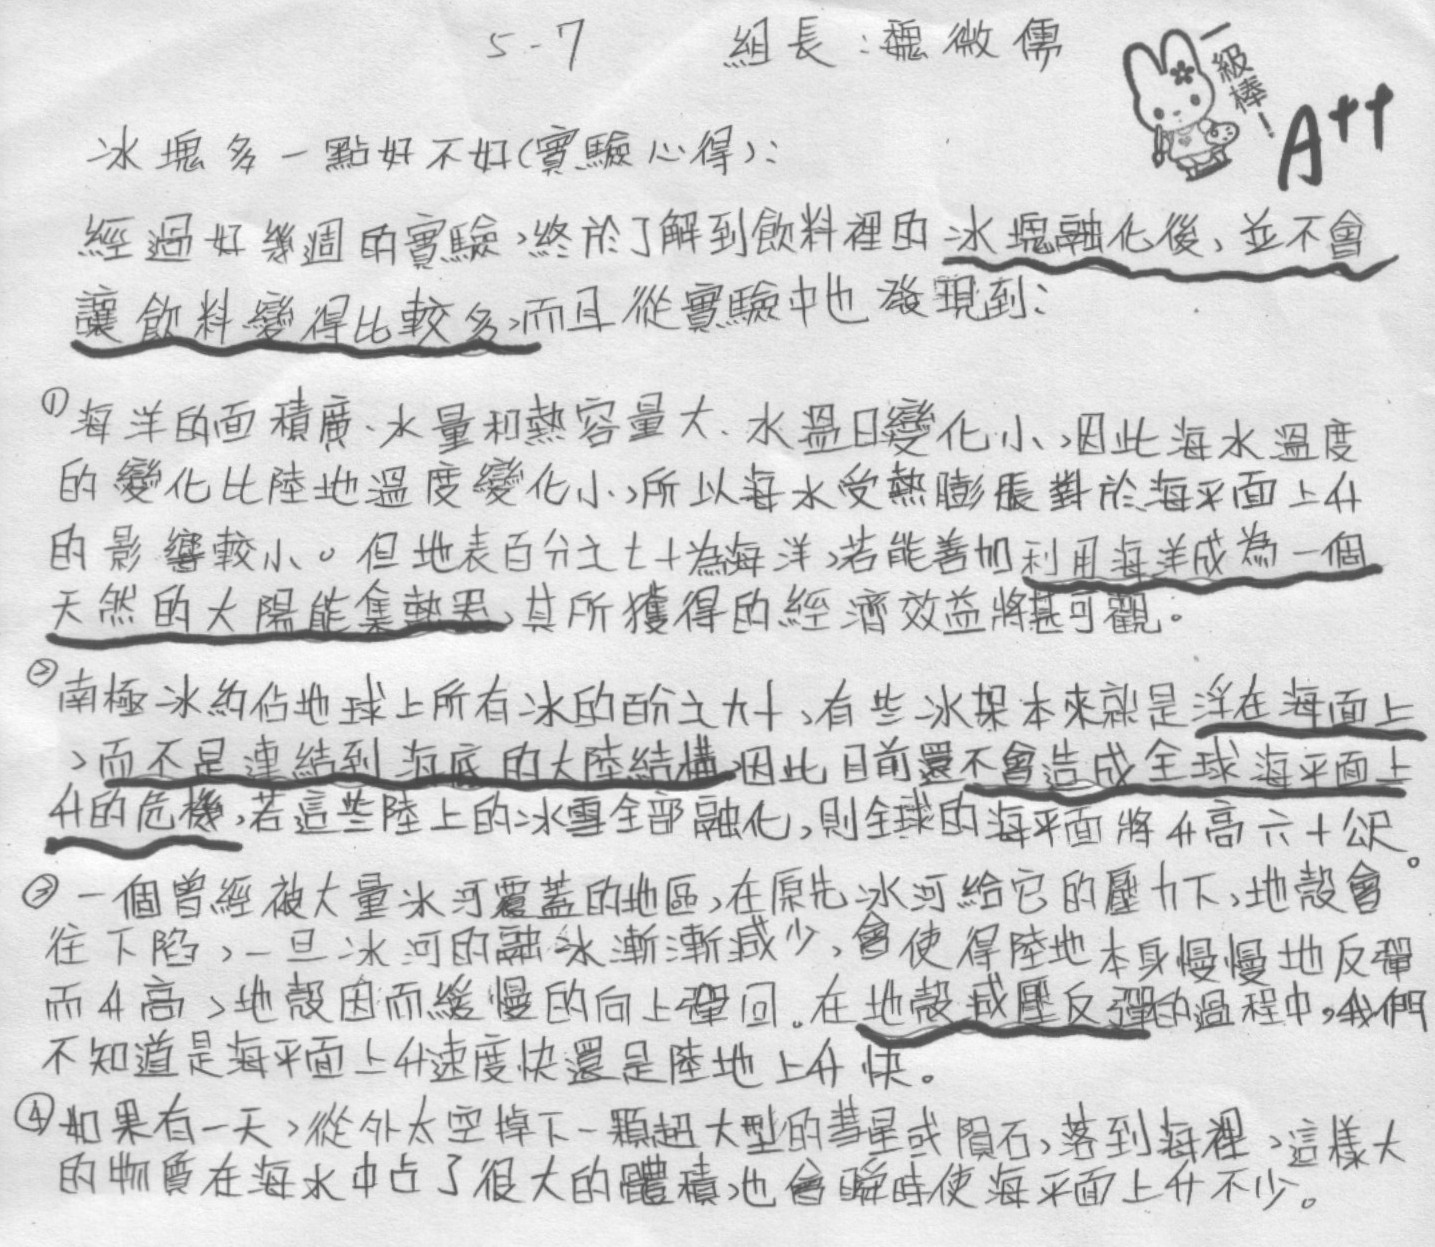 5-7 組長:魏微儒
一級棒!
A++
冰塊多一點好不好(實驗心得):
經過好幾週的實驗,終於了解到飲料裡的冰塊融化後,並不會
讓飲料變得比較多,而且從實驗中也發現到:
①海洋的面積廣、水量和熱容量大、水溫日變化小,因此海水溫度
的變化比陸地溫度變化小,所以海水受熱膨脹對於海平面上升
的影響較小。但地表百分之七十為海洋,若能善加利用海洋成為一個
天然的太陽能集熱器,其所獲得的經濟效益將甚可觀。
②南極冰約佔地球上所有冰的百分之九十,有些冰架本來就是浮在海面上
,而不是連結到海底的大陸結構,因此目前還不會造成全球海平面上
升的危機,若這些陸上的冰雪全部融化,則全球的海平面將升高六十公尺。
③一個曾經被大量冰河覆蓋的地區,在原先冰河給它的壓力下,地殼會
往下陷,一旦冰河的融冰漸漸減少,會使得陸地本身慢慢地反彈
而升高,地殼因而緩慢的向上彈回。在地殼減壓反彈的過程中,我們
不知道是海平面上升速度快還是陸地上升快。
④如果有一天,從外太空掉下一顆超大型的彗星或隕石,落到海裡,這樣大
的物質在海水中占了很大的體積,也會瞬時使海平面上升不少。